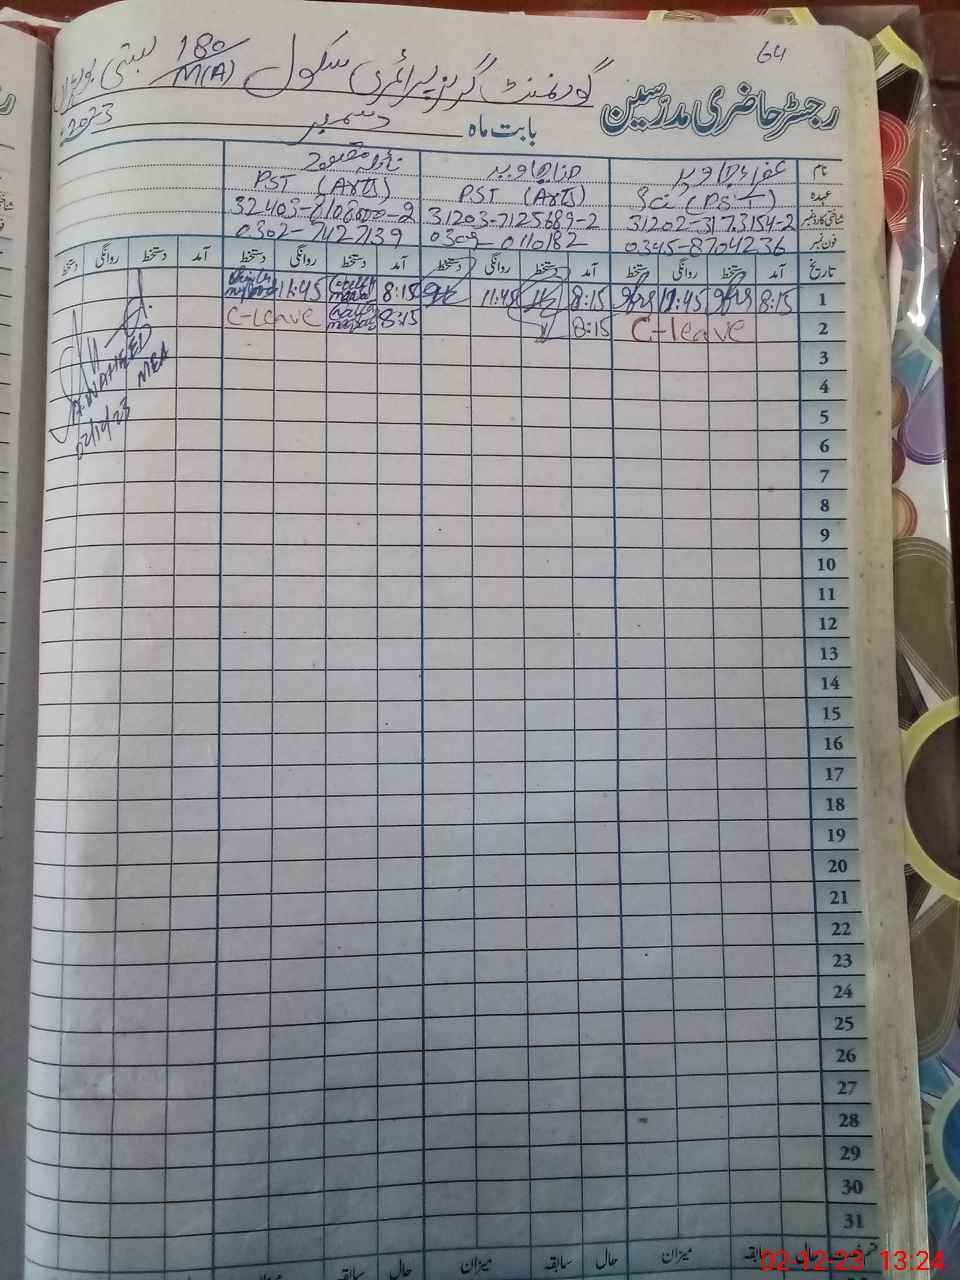 64
گورنمنٹ گرلز پرائمری سکول 180/M(A) بستی
رجسٹر حاضری مدرسین
بابت ماہ دسمبر 2023
نام عفراء جاوید حنا جاوید نائلہ مقصود
عہدہ (PST) PST (Arts) PST (Arts)
شناختی کارڈ نمبر 31202-3173154-2 31203-7125689-2
فون نمبر 0345-8704236 0309-0110182 0302-7427139
تاریخ آمد دستخط روانگی دستخط آمد دستخط روانگی دستخط آمد دستخط روانگی دستخط آمد دستخط روانگی دستخط
1 8:15 11:45 8:15 11:45 8:15 11:45
2 C-leave 8:15 8:15 C-leave
3
4
5
6
7
8
9
10
11
12
13
14
15
16
17
18
19
20
21
22
23
24
25
26
27
28
29
30
31
A.WAHEED
MEA
02/12/23
سابقہ حال میزان سابقہ حال میزان سابقہ حال
02-12-23 13:24